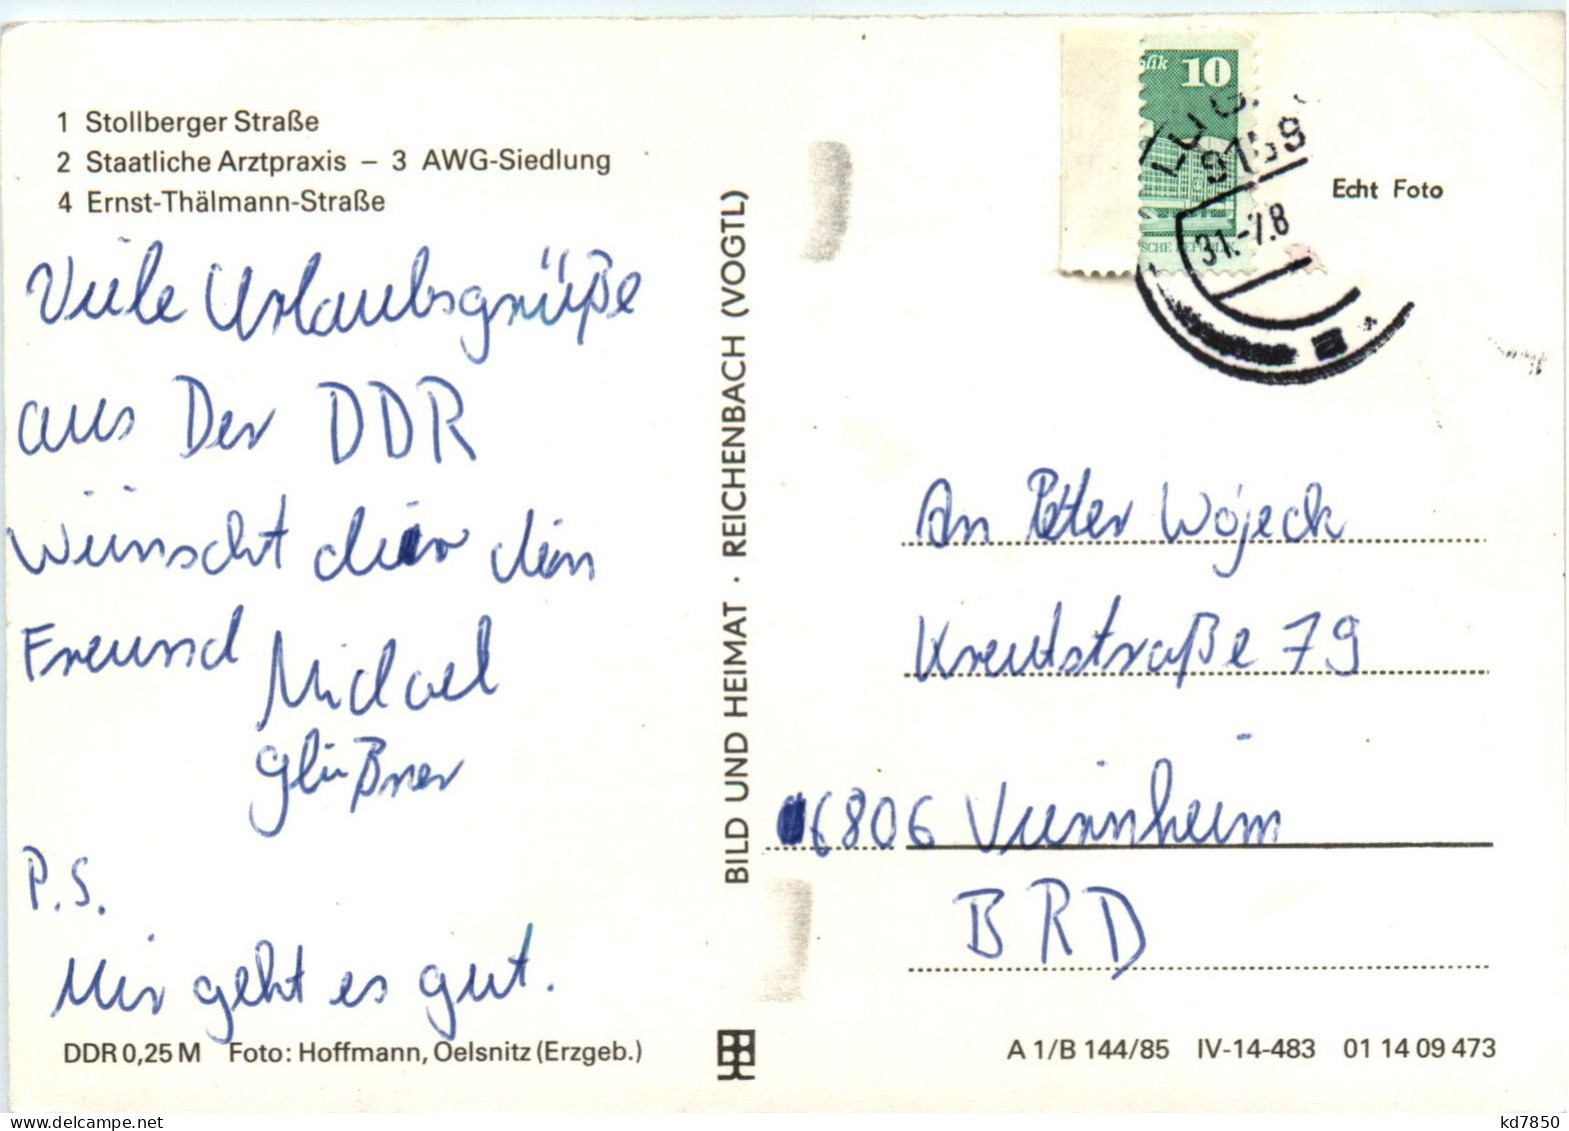 1 Stollberger Straße
2 Staatliche Arztpraxis – 3 AWG-Siedlung
4 Ernst-Thälmann-Straße
Viele Urlaubsgrüße
aus Der DDR
Wünscht dir dein
Freund Michael
Glißner
P.S.
Mir geht es gut.
DDR 0,25 M Foto: Hoffmann, Oelsnitz (Erzgeb.)
BILD UND HEIMAT · REICHENBACH (VOGTL)
10
31.-7.8
Echt Foto
An Peter Wójeck
Kreutstraße 79
6806 Viernheim
BRD
A 1/B 144/85 IV-14-483 01 14 09 473
kd7850